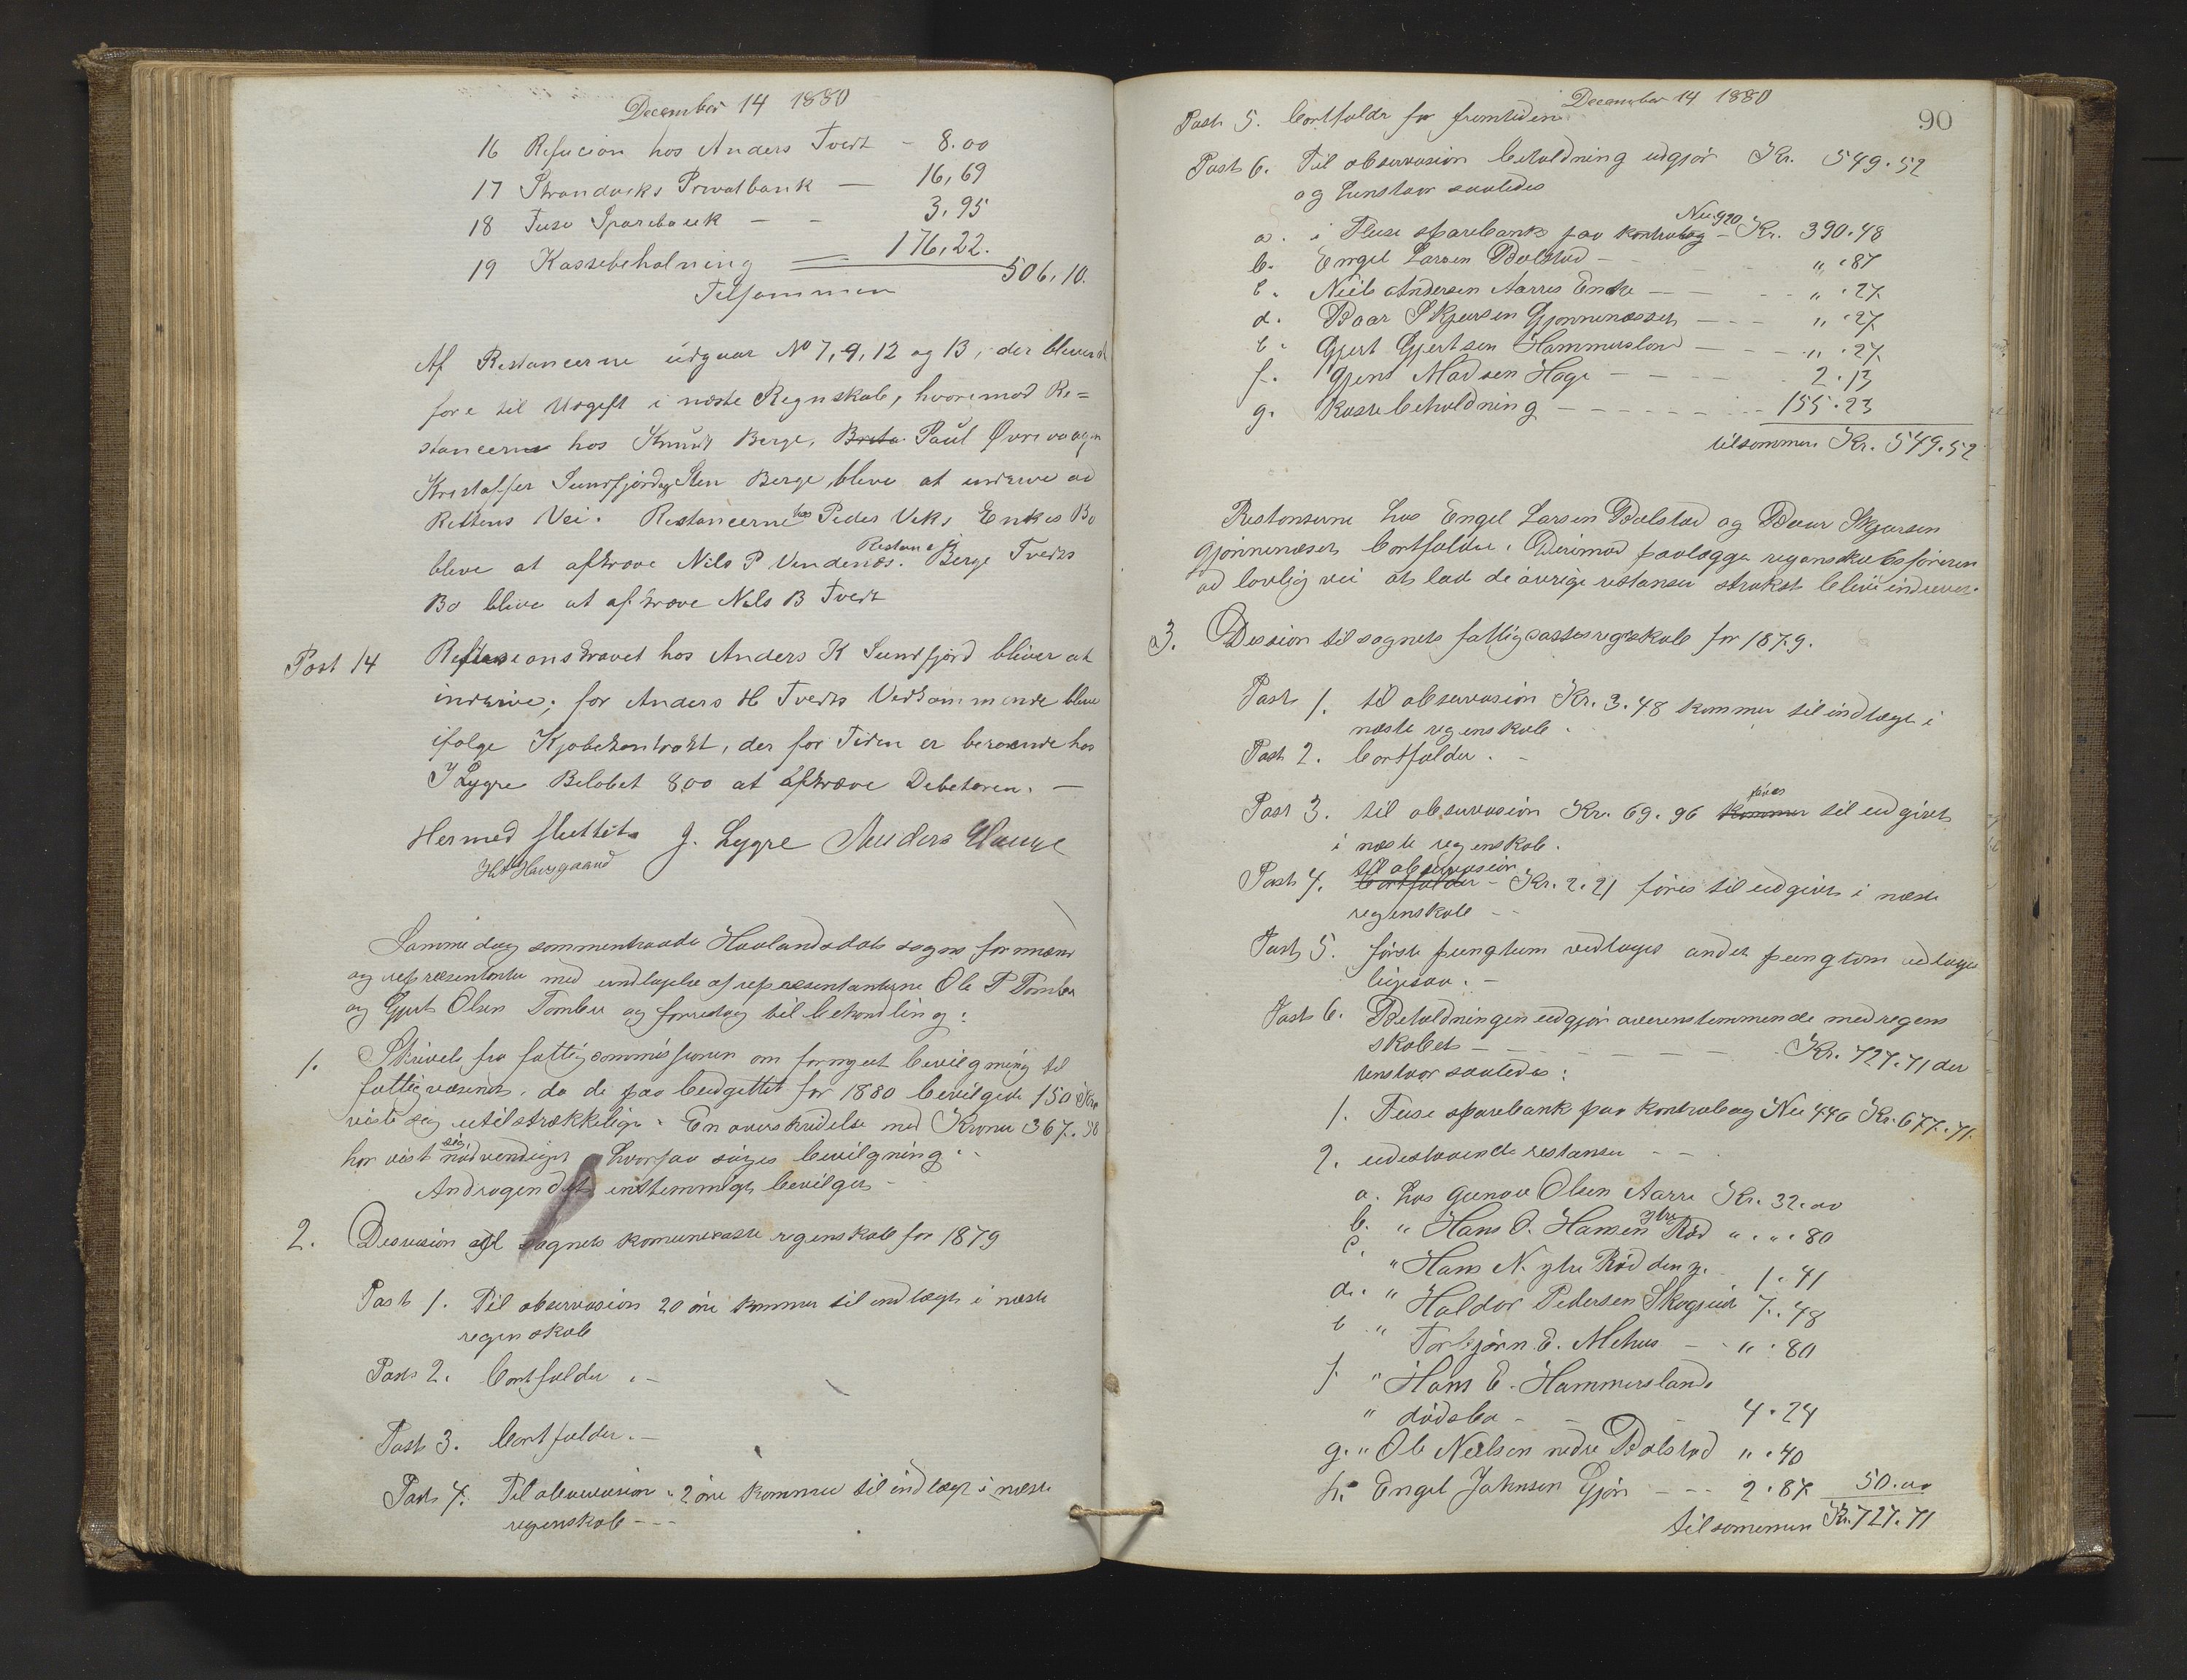 December 14 1880
16 Refucion hos Anders Tvedt - 8.00
17 Strandviks Privatbank — 16,69
18 Fuse Sparebank — - 3,95
19 Kassebeholning 176,22.
Tilsammen 506,10.
Af Restancerne udgaar No 7, 9, 12 og 13, der bliver at
føre til Udgift i næste Regnskab, hvorimod Re=
stancerne hos Knud Berge, Brita Paul Øvrevaagen
Kristoffer Sundfjord og Sten Berge blive at inddrive ad
Rettens Vei. Restancerne hos Peder Veks Enkes Bo
blive at afkræve Nils P Vendenæs. Restance Berge Tvedts
Bo blive at afkræve Nils B Tvedt
Post 14 Refusionskravet hos Anders K Sundfjord bliver at
inddrive; for Anders H Tvedts Vedkommende blive
ifølge Kjøbekontrakt, der for Tiden er beroende hos
J Lygre Beløbet 8,00 at afkræve Debetoren. —
Hermed sluttet J. Lygre Anders Hauge
H A Hævsgaard
Samme dag sammentraadte Haalandsdals sogns formænd
og repræsentanter med undtagelse af repræsentanterne Ole P Tombre
og Gjert Olsen Tombre og foretog til behandling:
1. Skrivelse fra fattigcommissionen om fornyet bevilgning til
fattigvæsenet, da de paa budgettet for 1880 bevilgede 150 Kr
viste sig utilstrækkelige. En overskridelse med Kroner 367.58
har vist sig nødvendigt hvorpaa søges bevilgning. -
Andragendet enstemmigt bevilget -
2. Desision til sognets komunekasse regenskab for 1879
Post 1. Til observasion 20 øre kommer til indtægt i næste
regenskab
Post 2. bortfalder. -
Post 3. bortfalder. -
Post 4. Til observasion " 2 øre kommer til indtægt i næste
regenskab - - -
December 14 1880
90
Post 5. bortfalder for fremtiden
Post 6. Til observasion beholdning udgjør Kr. 549.52
og henstaar saaledes
a. i Fuse sparebank paa kontrabog Nu. 920 - Kr. 390.48
b. Engel Larsen Bolstad - " . 87
c. Niels Andersen Aarres Enke — " . 27
d. Baar Skjersen Gjønnenesset - - - " . 27
e. Gjert Gjertsen Hammersland - - - " . 27
f. Gjert Madsen Hage - - - 2.13
g. Kassebeholdning - - - - - 155.23
tilsammen Kr. 549.52
Restanserne hos Engel Larsen Bolstad og Baar Skjersen
Gjønnenesset bortfalder. Derimod paalægges regenskabsføreren
ad lovlig vei at lade de øvrige restanser strakst blive inddrevet.
3. Desision til sognets fattigcasseregnskab for 1879.
Post 1. til observasion Kr. 3.48 kommer til indtægt i
næste regenskab.
Post 2. bortfalder. -
Post 3. til observasion Kr. 69.96 kommer føres til udgivt
i næste regenskab.
Post 4. bortfalder til observasion - Kr. 2.21 føres til udgivt i næste
regenskab - -
Post 5. første pungtum vedtages andet pungtum vedtages
ligesaa. -
Post 6. Beholdningen udgjør overenstemmende med regen
skabet - - - - - Kr. 727.71 der
henstaar saaledes:
1. Fuse sparebank paa kontrabog Nu 446 Kr. 677.71.
2. udestaaende restanser - -
a. hos Gunar Olsen Aarre Kr. 32.00
b. " Hans O. Hansen ytre Rød " . " . 80
c. " Hans N. ytre Rød den y. 1.41
d. " Haldor Pedersen Skogseid 7.48
e " Torbjørn E. Mehus - " . 80
f " Hans E. Hammersland
" dødsbo - - 4.24
g. " Ole Nielsen nedre Bolstad " . 40
h. Engel Johnsen Gjøn - - - 2.87 50.00
tilsammen Kr. 727.71